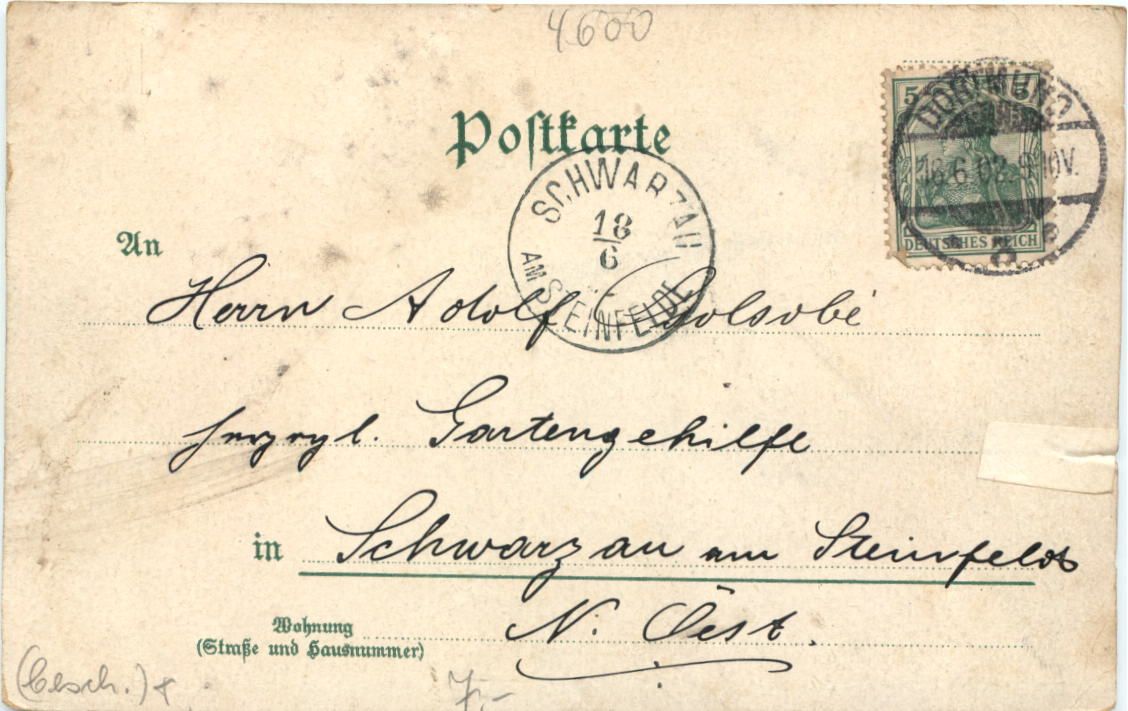 4600
Postkarte
5
DORTMUND
16.6.02.9-10V.
DEUTSCHES REICH
SCHWARZAU
18
6
AM STEINFELDE
An
Herrn Adolf
herzogl. Gartengehilfe
in Schwarzau am Steinfelde
N. Oest.
Wohnung
(Straße und Hausnummer)
(besch.)
7,-